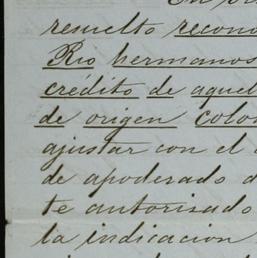 resuelto recono
Rio hermanos
crédito de aquel
de origen colo
ajustar con el
de apoderado d
te autorisado
la indicacion